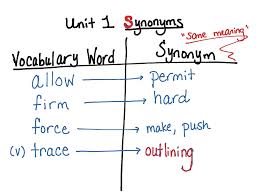 Unit 1 Synonyms
"same meaning"
Vocabulary Word Synonym
allow permit
firm hard
force make, push
(v) trace outlining